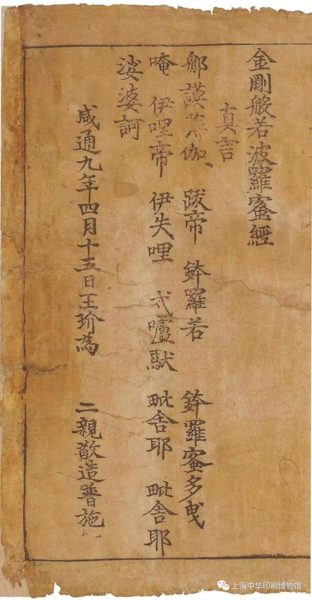 金剛般若波羅蜜經
真言
那謨薄伽 跋帝 鉢羅若 鉢羅蜜多曳
唵 伊哩帝 伊失哩 戍嚧馱 毗舍耶 毗舍耶
娑婆訶
咸通九年四月十五日王玠為 二親敬造普施
上海中华印刷博物馆